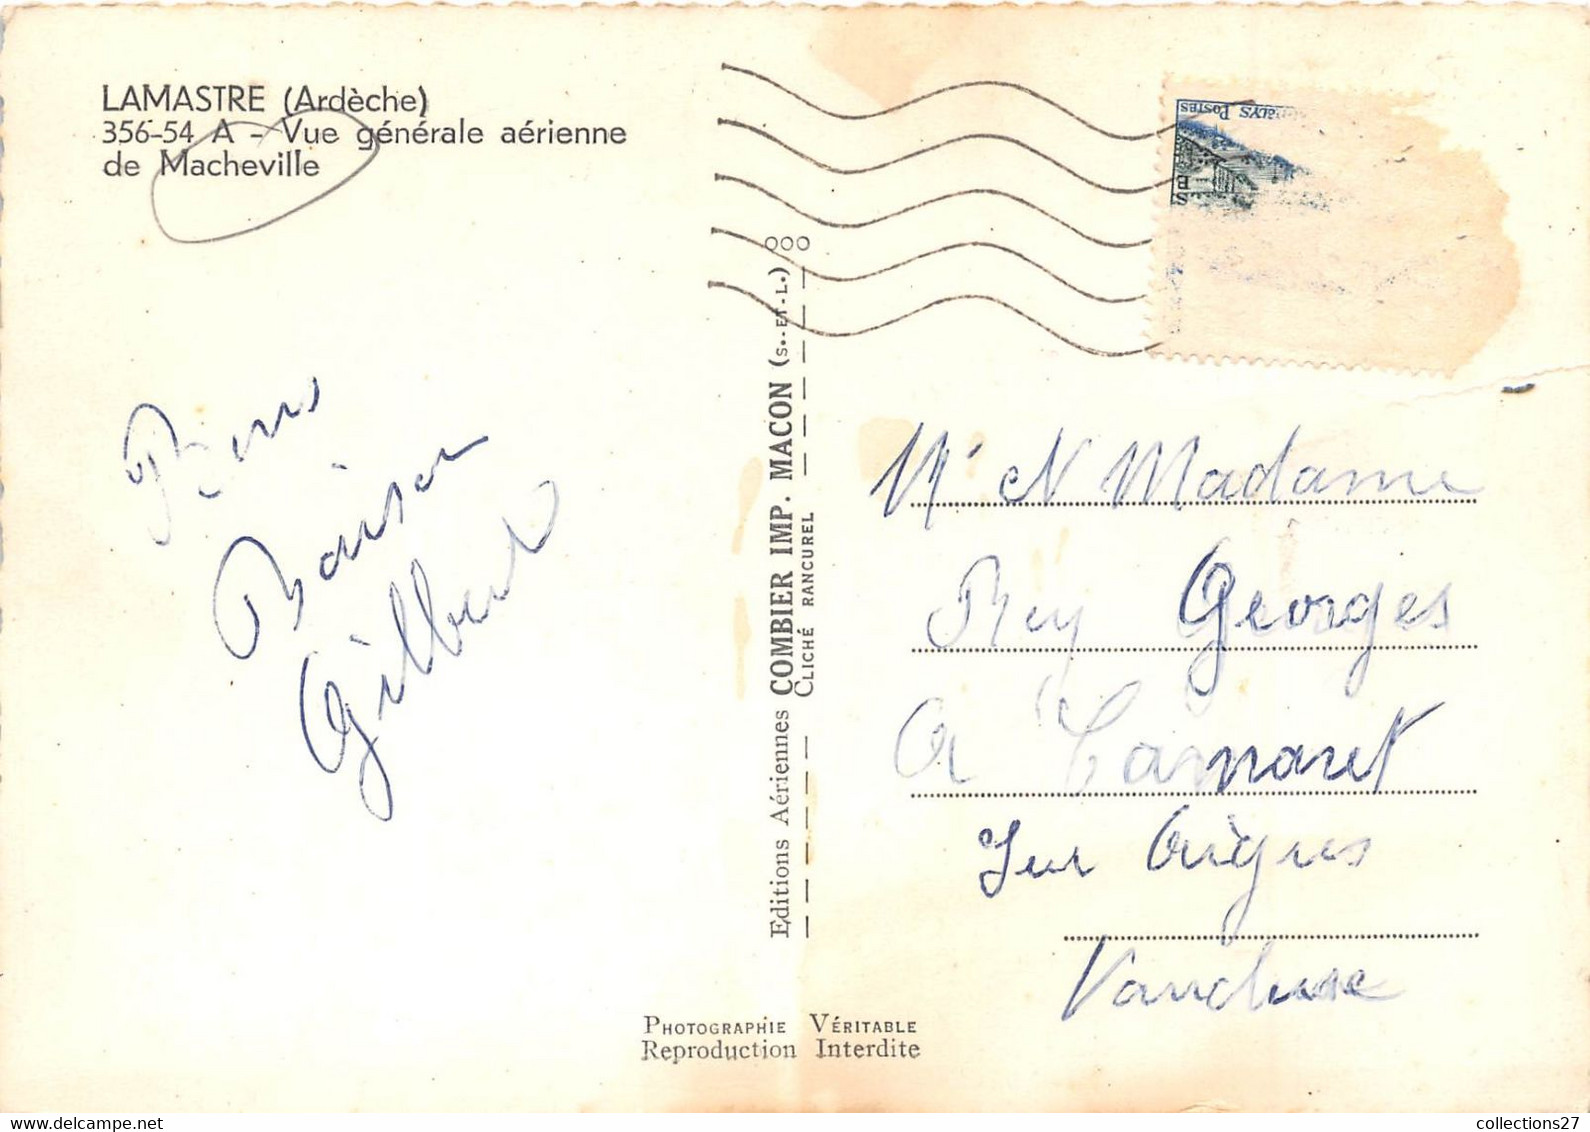 LAMASTRE (Ardèche)
356-54 A - Vue générale aérienne
de Macheville
Bons
Baiser
Gilbert
Editions Aériennes COMBIER IMP. MACON (S.-ET-L.)
CLICHÉ RANCUREL
POSTES
Mr et Madame
Rey Georges
A Camaret
Sur Aigues
Vaucluse
PHOTOGRAPHIE VÉRITABLE
Reproduction Interdite
collections27